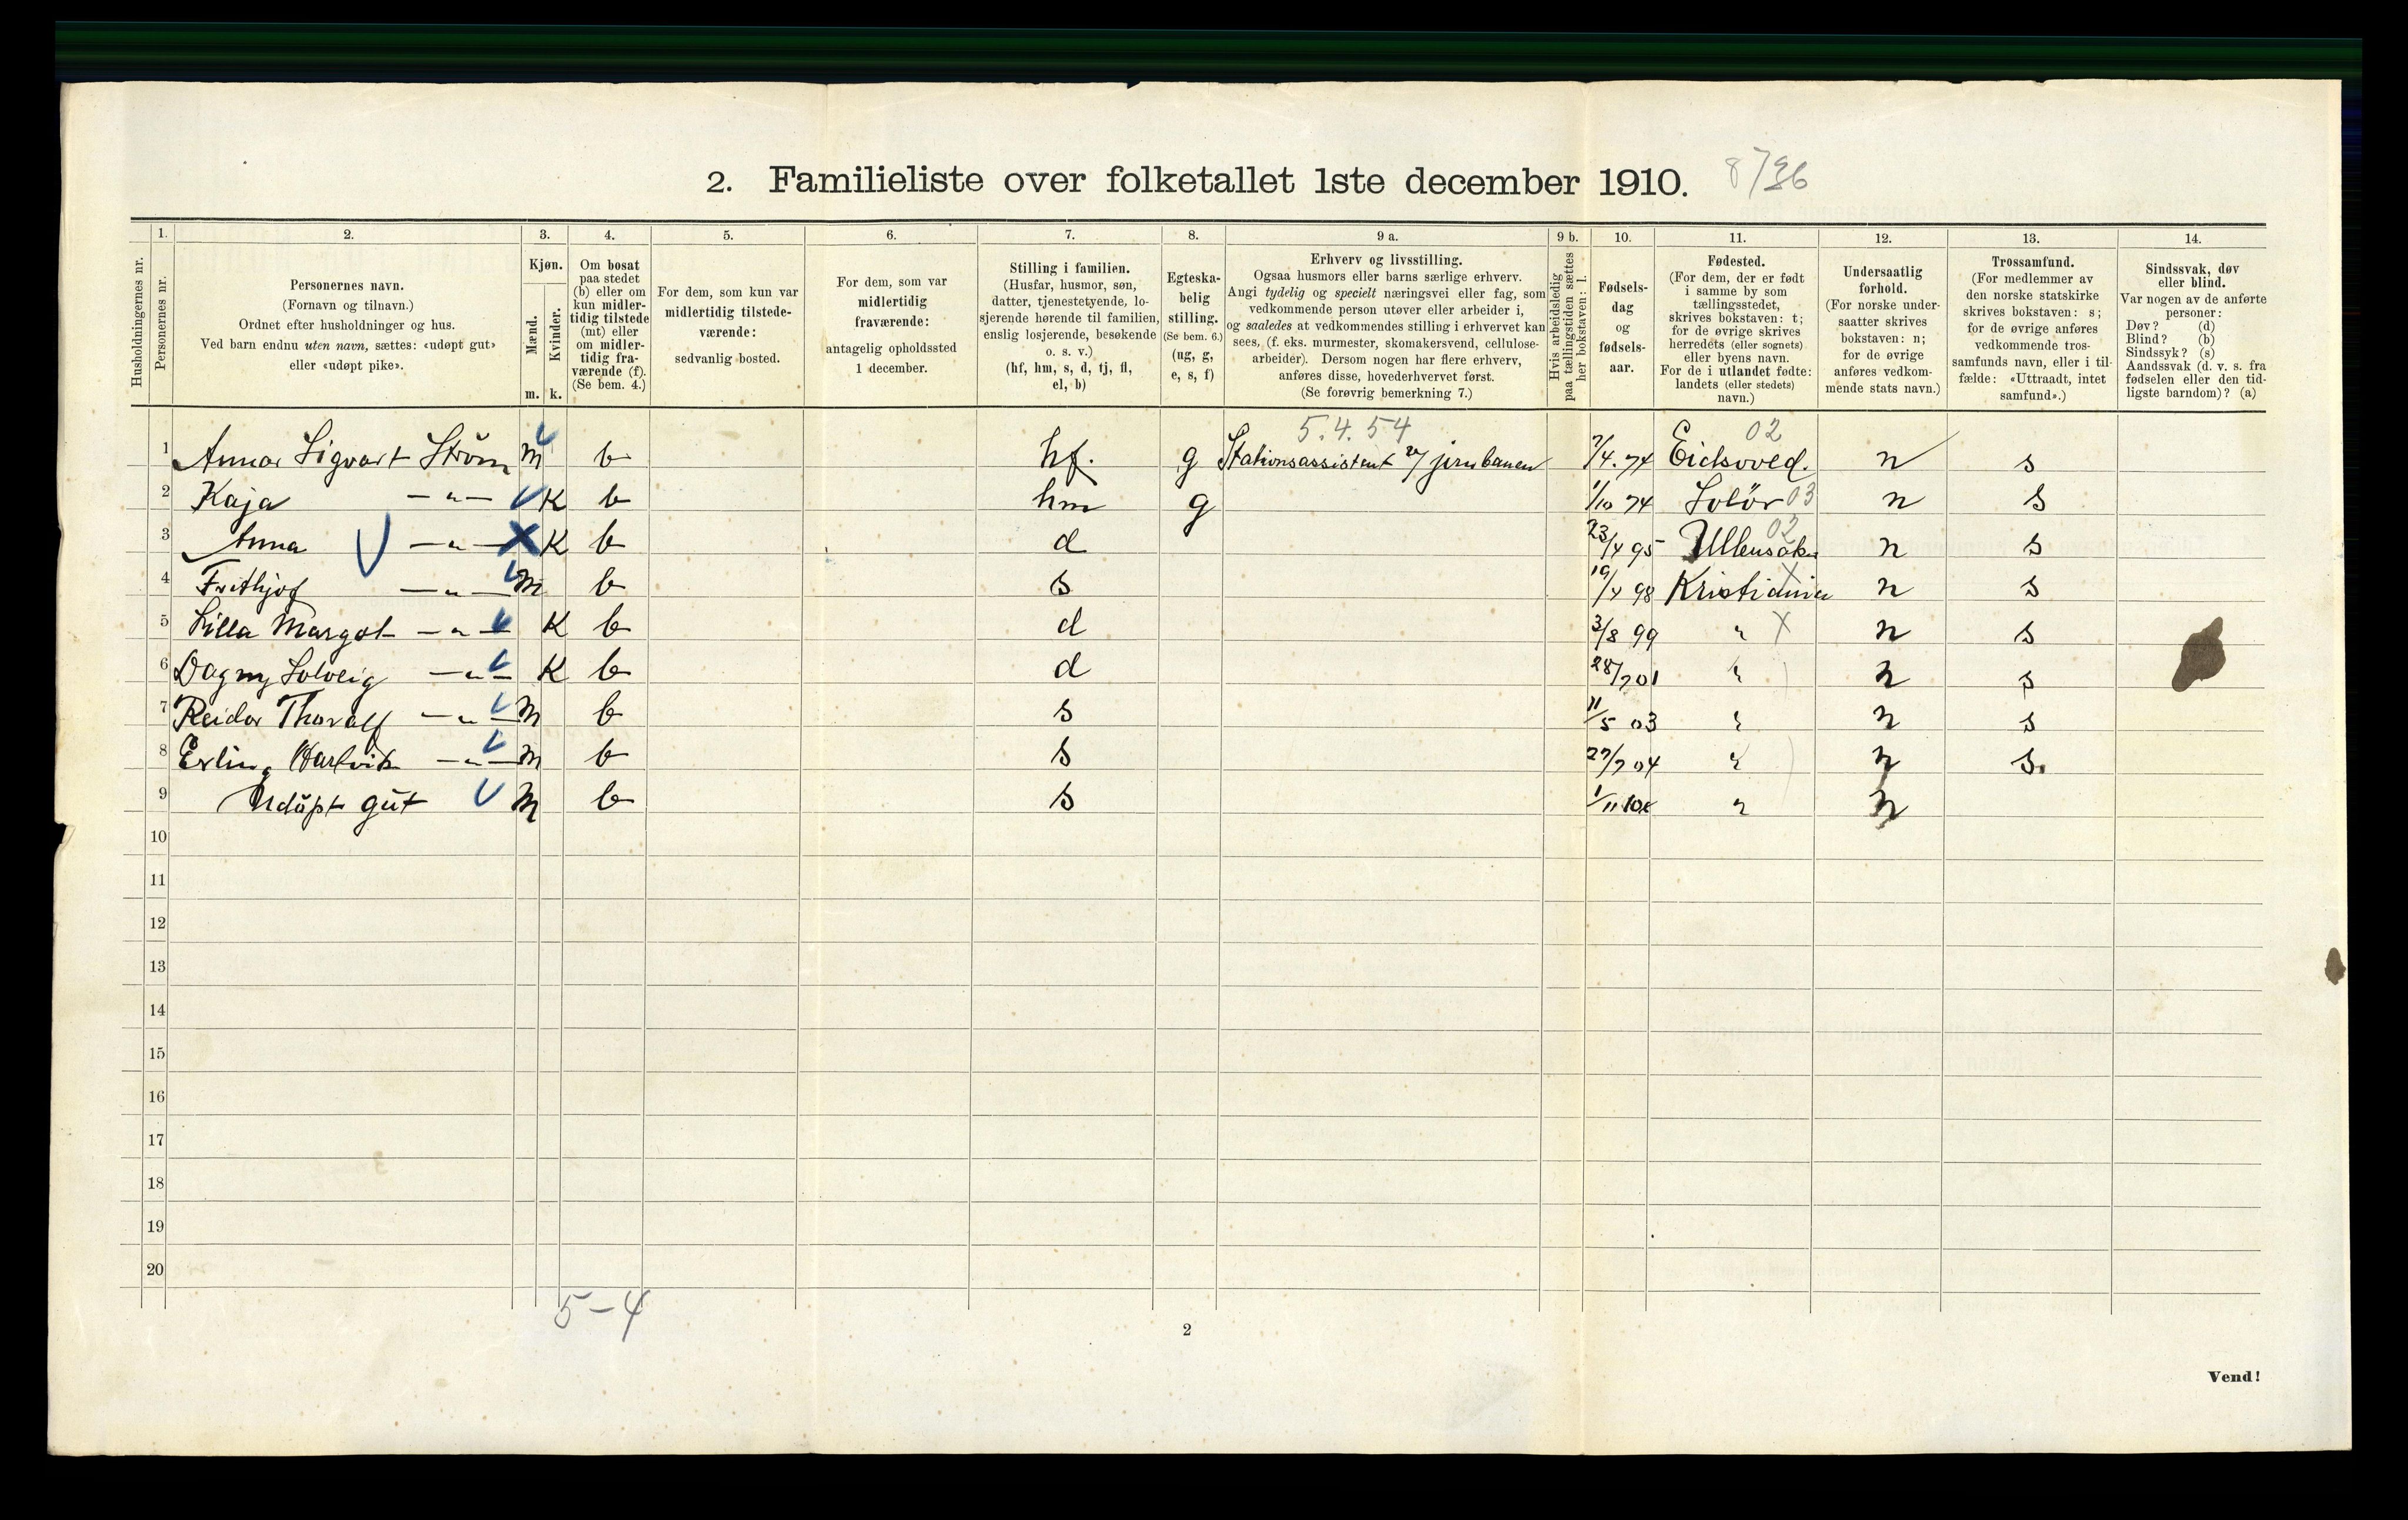 2. Familieliste over folketallet 1ste december 1910. 8/36
1. 2. 3. 4. 5. 6. 7. 8. 9 a. 9 b. 10. 11. 12. 13. 14.
Husholdningernes nr.
Personernes nr.
Personernes navn.
(Fornavn og tilnavn.)
Ordnet efter husholdninger og hus.
Ved barn endnu uten navn, sættes: «udøpt gut»
eller «udøpt pike».
Kjøn.
Mænd.
Kvinder.
m. k.
Om bosat
paa stedet
(b) eller om
kun midler-
tidig tilstede
(mt) eller
om midler-
tidig fra-
værende (f).
(Se bem. 4.)
For dem, som kun var
midlertidig tilstede-
værende:
sedvanlig bosted.
For dem, som var
midlertidig
fraværende:
antagelig opholdssted
1 december.
Stilling i familien.
(Husfar, husmor, søn,
datter, tjenestetyende, lo-
sjerende hørende til familien,
enslig losjerende, besøkende
o. s. v.)
(hf, hm, s, d, tj, fl,
el, b)
Egteska-
belig
stilling.
(Se bem. 6.)
(ug, g,
e, s, f)
Erhverv og livsstilling.
Ogsaa husmors eller barns særlige erhverv.
Angi tydelig og specielt næringsvei eller fag, som
vedkommende person utøver eller arbeider i,
og saaledes at vedkommendes stilling i erhvervet kan
sees, (f. eks. murmester, skomakersvend, cellulose-
arbeider). Dersom nogen har flere erhverv,
anføres disse, hovederhvervet først.
(Se forøvrig bemerkning 7.)
Hvis arbeidsledig
paa tællingstiden sættes
her bokstaven: l.
Fødsels-
dag
og
fødsels-
aar.
Fødested.
(For dem, der er født
i samme by som
tællingsstedet,
skrives bokstaven: t;
for de øvrige skrives
herredets (eller sognets)
eller byens navn.
For de i utlandet fødte:
landets (eller stedets)
navn.)
Undersaatlig
forhold.
(For norske under-
saatter skrives
bokstaven: n;
for de øvrige
anføres vedkom-
mende stats navn.)
Trossamfund.
(For medlemmer av
den norske statskirke
skrives bokstaven: s;
for de øvrige anføres
vedkommende tros-
samfunds navn, eller i til-
fælde: «Uttraadt, intet
samfund».)
Sindssvak, døv
eller blind.
Var nogen av de anførte
personer:
Døv? (d)
Blind? (b)
Sindssyk? (s)
Aandssvak (d. v. s. fra
fødselen eller den tid-
ligste barndom)? (a)
5.4.54 02
1 Annar Sigvart Ström m b hf. g Stationsassistent v/ jernbanen 7/4. 74 Eidsvold. n s
2 Kaja —"— K b hm g 1/10 74 Solör 03 n s
3 Anna —"— K b d 23/4 95 Ullensaker 02 n s
4 Frithjof —"— m b s 19/4 98 Kristiania n s
5 Lilla Margot —"— K b d 3/8 99 " n s
6 Dagny Solveig —"— K b d 28/7 01 " n s
7 Reidar Thoralf —"— m b s 11/5 03 " n s
8 Erling Hartvik —"— m b s 27/7 04 " n s.
9 Udöpt gut m b s 1/11 10 " n
10
11
12
13
14
15
16
17
18
19
20
5-4
2
Vend!